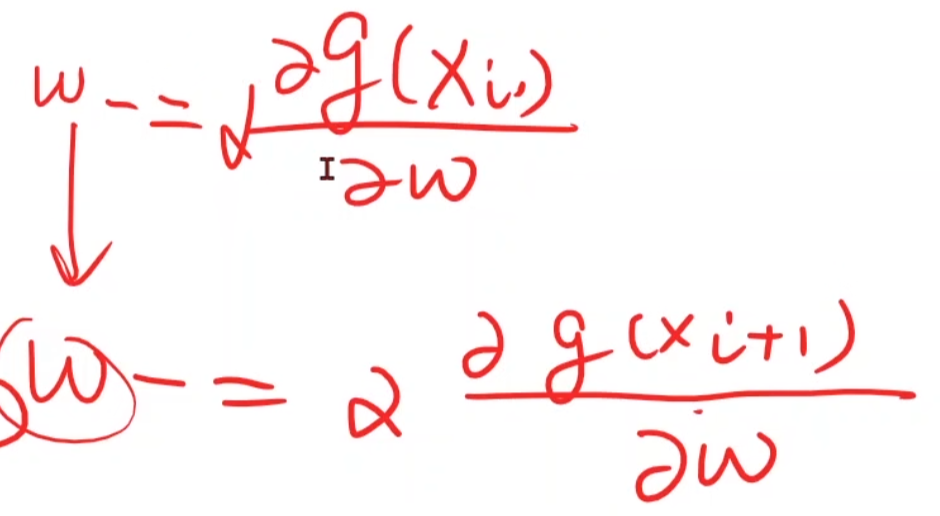 w -= α ∂g(xi) / ∂w
w -= α ∂g(xi+1) / ∂w